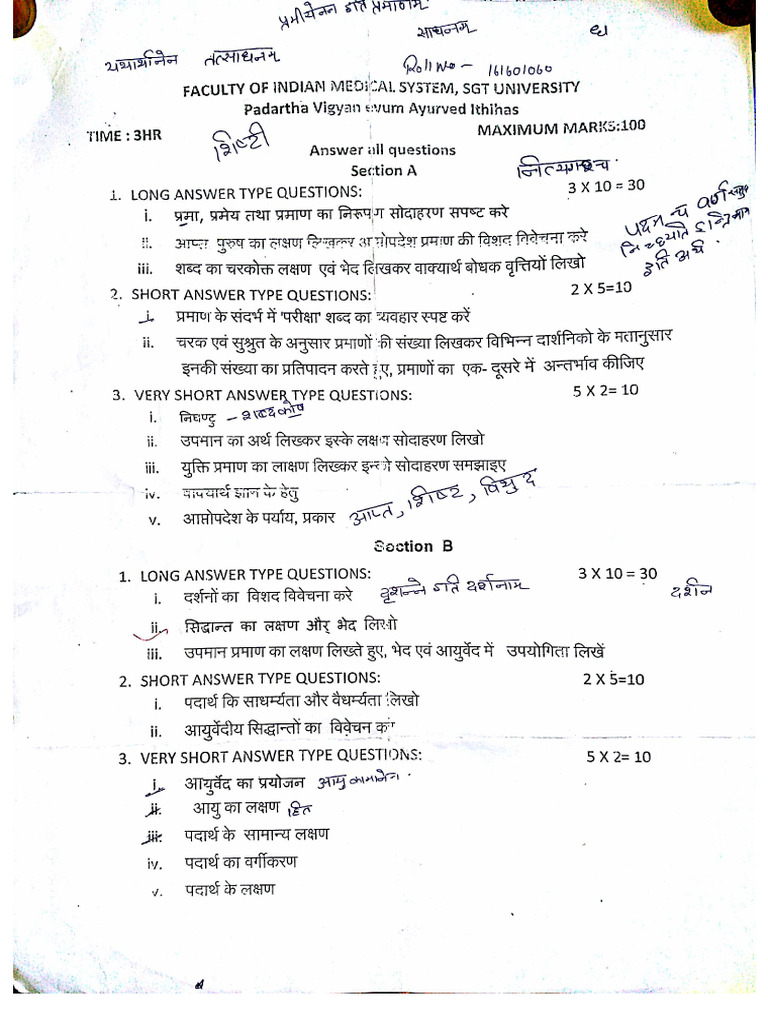 प्रमीयेनन इति प्रमाणम्
साधनम्
यथार्थानेन तत्साधनम्
Roll No - 161601060
FACULTY OF INDIAN MEDICAL SYSTEM, SGT UNIVERSITY
Padartha Vigyan evum Ayurved Ithihas
TIME : 3HR
MAXIMUM MARKS:100
शिष्टी
Answer all questions
Section A
1. LONG ANSWER TYPE QUESTIONS: 3 X 10 = 30
i. प्रमा, प्रमेय तथा प्रमाण का निरूपण सोदाहरण सपष्ट करे
ii. आप्त पुरुष का लक्षण लिखकर आप्तोपदेश प्रमाण की विशद विवेचना करे
iii. शब्द का चरकोक्त लक्षण एवं भेद लिखकर वाक्यार्थ बोधक वृत्तियों लिखो
इति अर्थ .
2. SHORT ANSWER TYPE QUESTIONS: 2 X 5=10
i. प्रमाण के संदर्भ में 'परीक्षा' शब्द का व्यवहार स्पष्ट करें
ii. चरक एवं सुश्रुत के अनुसार प्रमाणों की संख्या लिखकर विभिन्न दार्शनिको के मतानुसार
इनकी संख्या का प्रतिपादन करते हुए, प्रमाणों का एक- दूसरे में अन्तर्भाव कीजिए
3. VERY SHORT ANSWER TYPE QUESTIONS: 5 X 2= 10
i. निघण्टु - शब्दकोष
ii. उपमान का अर्थ लिख्कर इस्के लक्षण सोदाहरण लिखो
iii. युक्ति प्रमाण का लाक्षण लिख्कर इन्को सोदाहरण समझाइए
iv. वाक्यार्थ ज्ञान के हेतु
v. आप्तोपदेश के पर्याय, प्रकार आप्त, शिष्ट, विबुद
Section B
1. LONG ANSWER TYPE QUESTIONS: 3 X 10 = 30
i. दर्शनों का विशद विवेचना करे दृशन्ने इति दर्शनाम दर्शन
ii. सिद्धान्त का लक्षण और भेद लिखो
iii. उपमान प्रमाण का लक्षण लिख्ते हुए, भेद एवं आयुर्वेद में उपयोगिता लिखें
2. SHORT ANSWER TYPE QUESTIONS: 2 X 5=10
i. पदार्थ कि साधर्म्यता और वैधर्म्यता लिखो
ii. आयुर्वेदीय सिद्धान्तों का विवेचन करे
3. VERY SHORT ANSWER TYPE QUESTIONS: 5 X 2= 10
i. आयुर्वेद का प्रयोजन
ii. आयु का लक्षण हित
iii. पदार्थ के सामान्य लक्षण
iv. पदार्थ का वर्गीकरण
v. पदार्थ के लक्षण